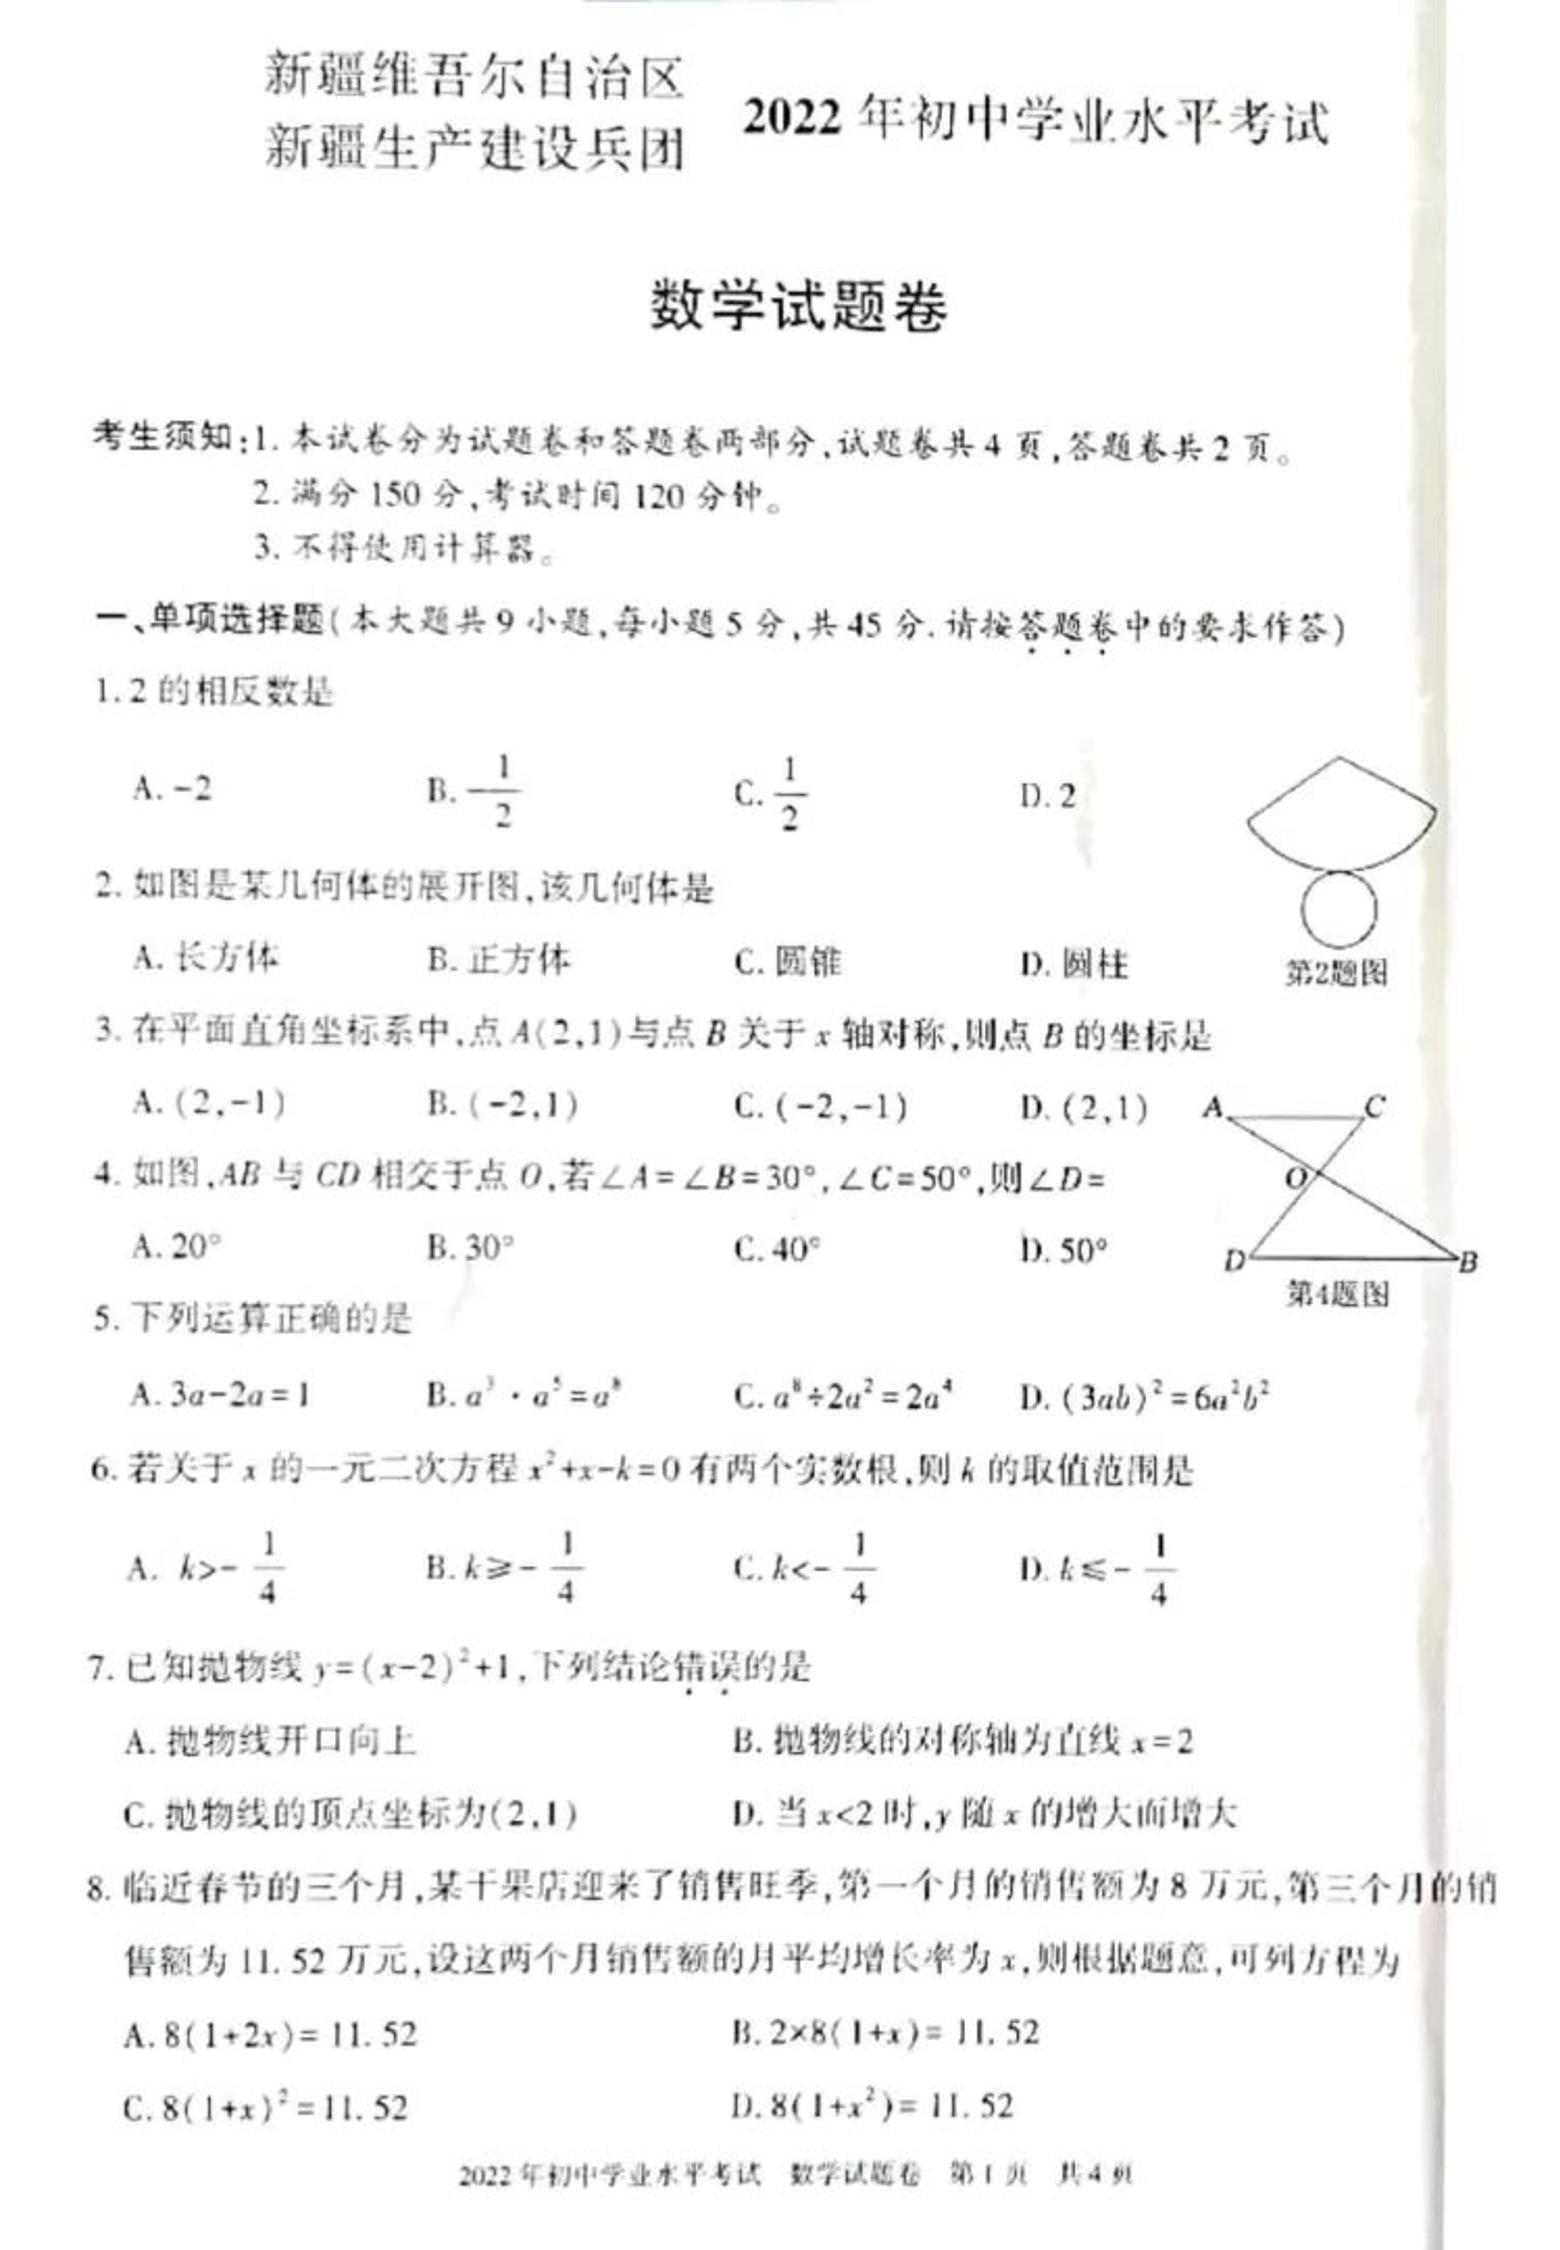 新疆维吾尔自治区
新疆生产建设兵团
2022 年初中学业水平考试
数学试题卷
考生须知:1. 本试卷分为试题卷和答题卷两部分,试题卷共 4 页,答题卷共 2 页。
2. 满分 150 分,考试时间 120 分钟。
3. 不得使用计算器。
一、单项选择题(本大题共 9 小题,每小题 5 分,共 45 分.请按答题卷中的要求作答)
1. 2 的相反数是
A. -2 B. -1/2 C. 1/2 D. 2
2. 如图是某几何体的展开图,该几何体是
A. 长方体 B. 正方体 C. 圆锥 D. 圆柱
第2题图
3. 在平面直角坐标系中,点 A(2,1)与点 B 关于 x 轴对称,则点 B 的坐标是
A. (2,-1) B. (-2,1) C. (-2,-1) D. (2,1)
A C
4. 如图,AB 与 CD 相交于点 O,若∠A=∠B=30°,∠C=50°,则∠D=
O
A. 20° B. 30° C. 40° D. 50°
D B
第4题图
5. 下列运算正确的是
A. 3a-2a=1 B. a³·a⁵=a⁸ C. a⁸÷2a²=2a⁴ D. (3ab)²=6a²b²
6. 若关于 x 的一元二次方程 x²+x-k=0 有两个实数根,则 k 的取值范围是
A. k>-1/4 B. k≥-1/4 C. k<-1/4 D. k≤-1/4
7. 已知抛物线 y=(x-2)²+1,下列结论错误的是
A. 抛物线开口向上 B. 抛物线的对称轴为直线 x=2
C. 抛物线的顶点坐标为(2,1) D. 当 x<2 时,y 随 x 的增大而增大
8. 临近春节的三个月,某干果店迎来了销售旺季,第一个月的销售额为 8 万元,第三个月的销
售额为 11. 52 万元,设这两个月销售额的月平均增长率为 x,则根据题意,可列方程为
A. 8(1+2x)= 11. 52 B. 2×8(1+x)= 11. 52
C. 8(1+x)²=11. 52 D. 8(1+x²)= 11. 52
2022 年初中学业水平考试 数学试题卷 第 1 页 共 4 页